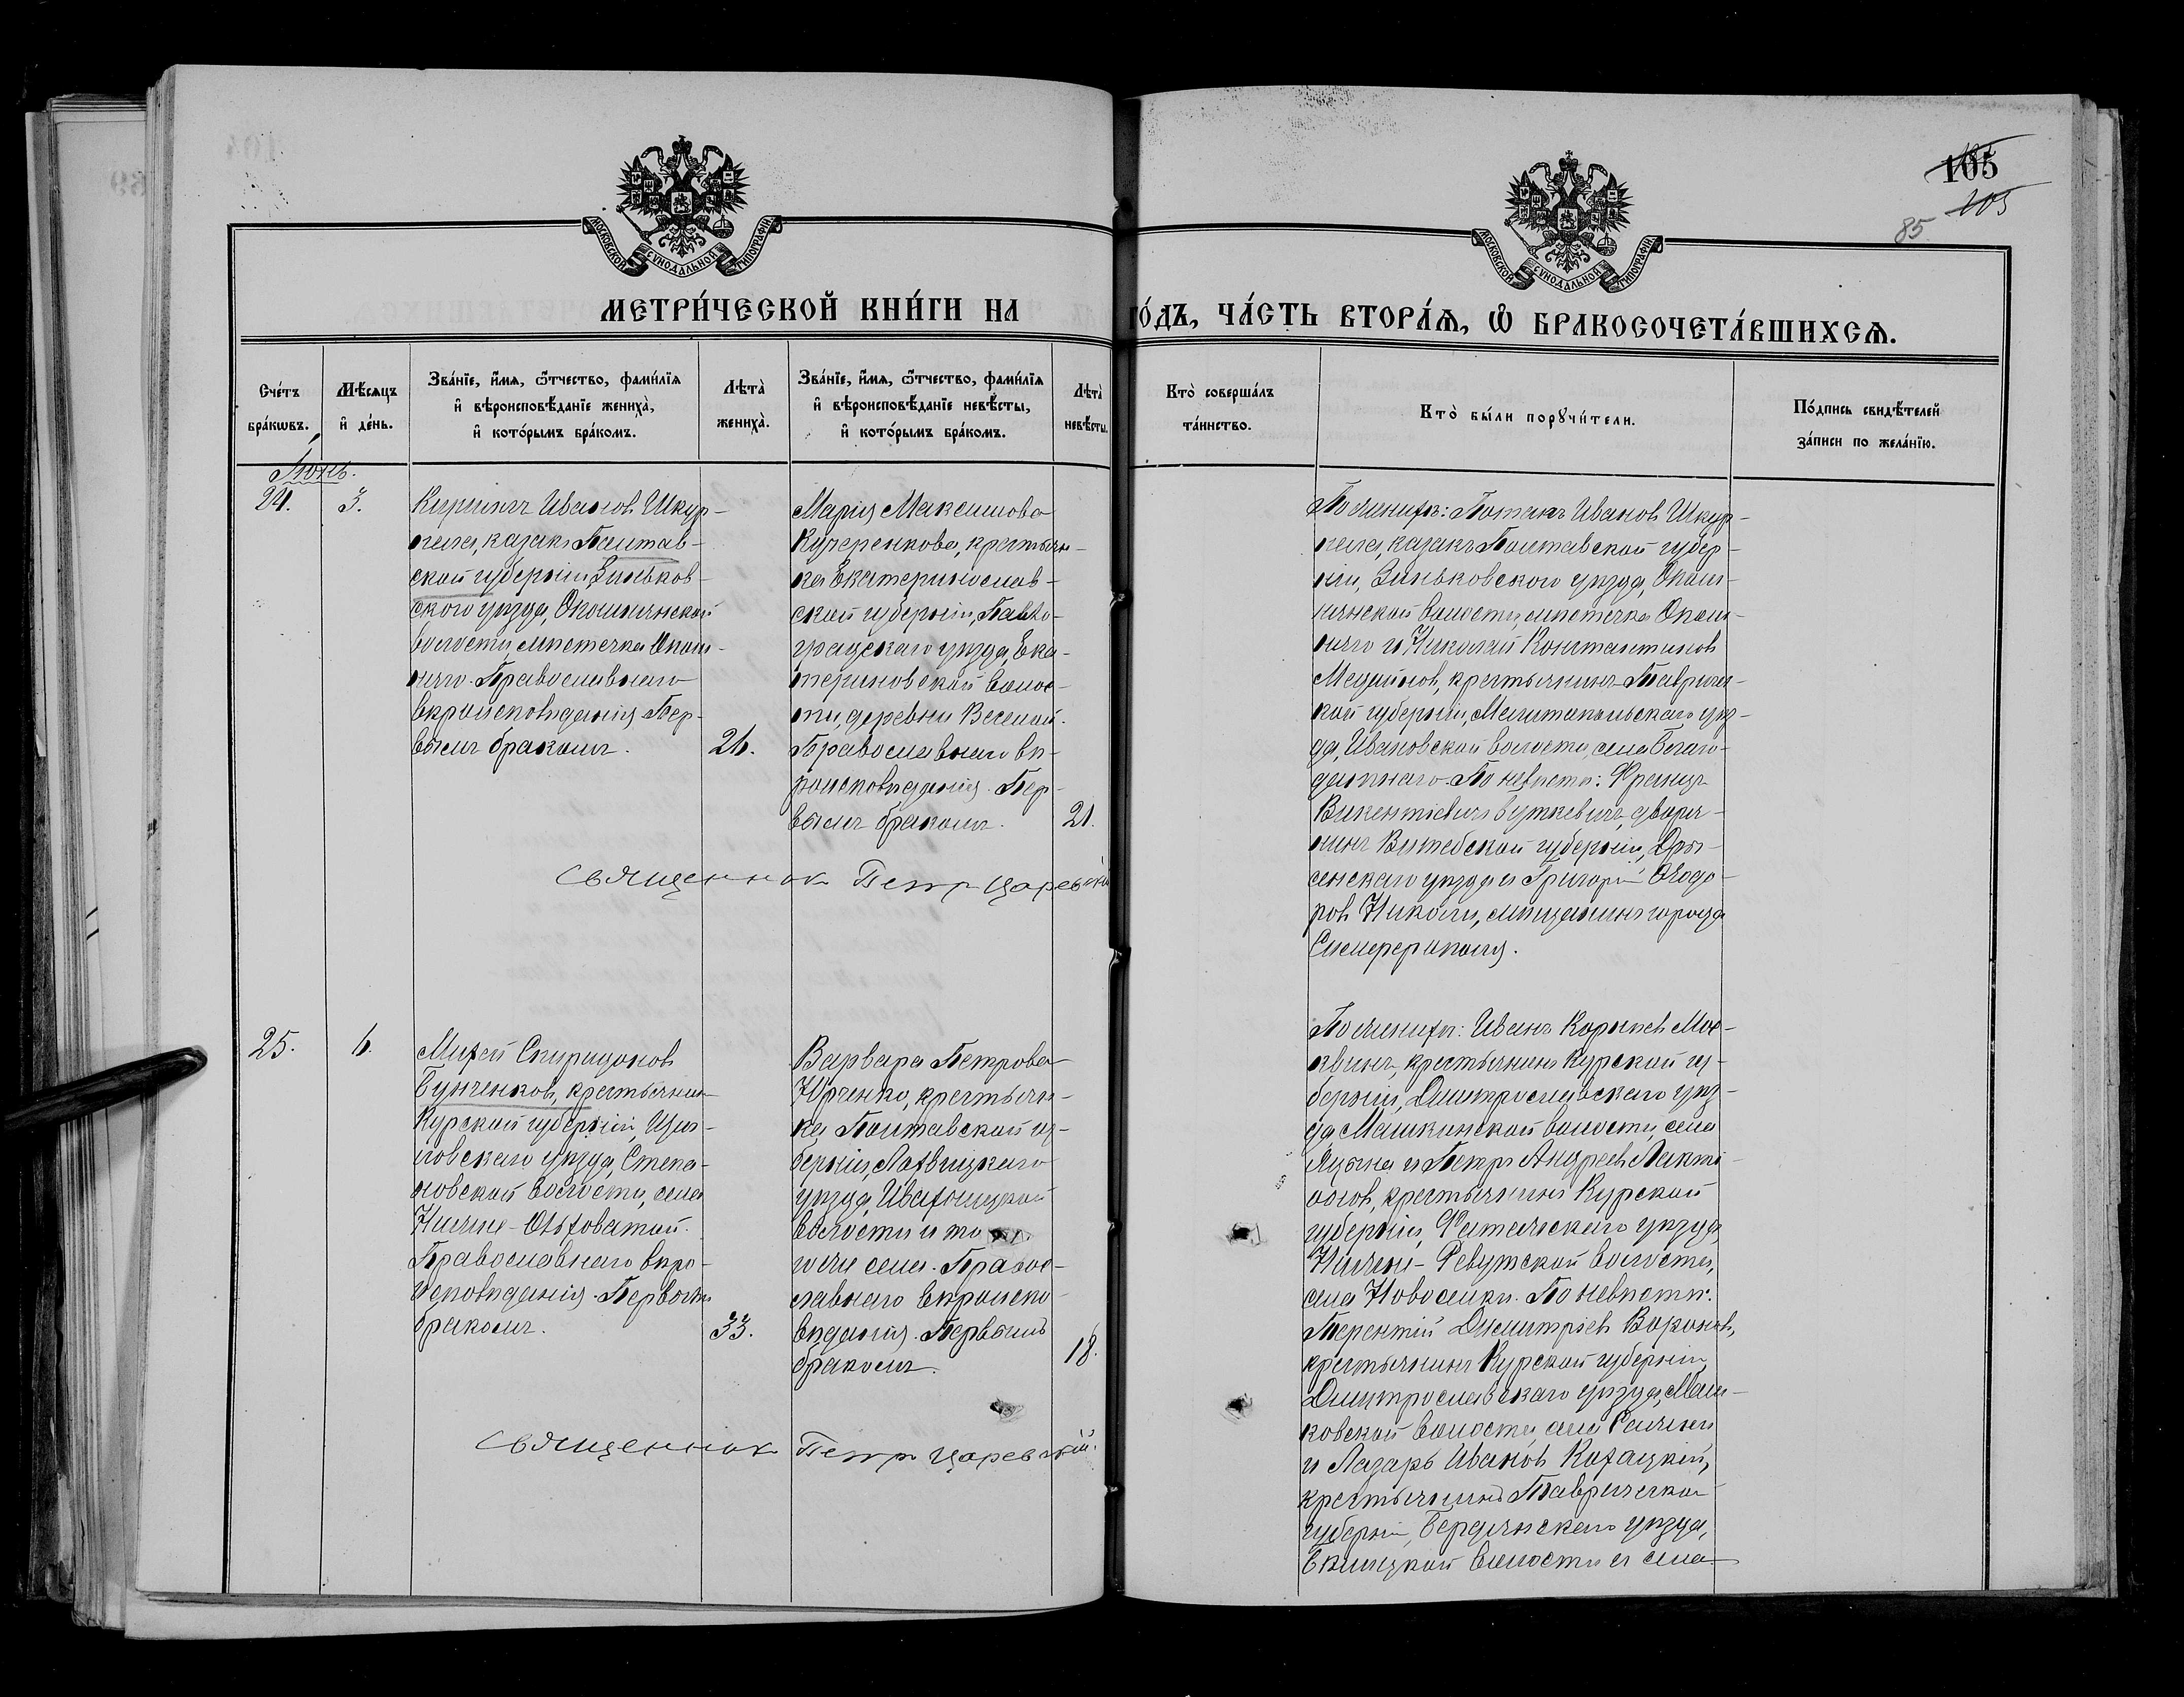 105
105
85
МОСКОВСКОЙ СѴНОДАЛЬНОЙ ТИПОГРАФІИ
МОСКОВСКОЙ СѴНОДАЛЬНОЙ ТИПОГРАФІИ
МЕТРИ́ЧЕСКОЙ КНИ́ГИ НА ГО́ДЪ, ЧА́СТЬ ВТОРА́Ѧ, Ѡ҆ БРАКОСОЧЕТА́ВШИХСѦ.
Сче́тъ бра́кѡвъ.
Мѣ́сѧцъ и҆ де́нь.
Зва́нїе, и҆́мѧ, ѻ҆́тчество, фами́лїѧ и҆ вѣроисповѣ́данїе жениха̀, и҆ кото́рымъ бра́комъ.
Лѣта̀ жениха̀.
Зва́нїе, и҆́мѧ, ѻ҆́тчество, фами́лїѧ и҆ вѣроисповѣ́данїе невѣ́сты, и҆ кото́рымъ бра́комъ.
Лѣта̀ невѣ́сты.
Кто̀ соверша́лъ та́инство.
Кто̀ бы́ли порꙋчи́тели.
По́дпись свидѣ́телей за́писи по жела́нїю.
Іюнь.
24.
3.
Кирикъ Ивановъ Шкур-
пела, казакъ Полтав-
ской губерніи, Зиньков-
ского уѣзда, Опошнянской
волости, мѣстечка Опош-
няго. Православнаго
вѣроисповѣданія. Пер-
вымъ бракомъ.
26.
Марія Максимова
Кучеренкова, крестьян-
ка Екатеринослав-
ской губерніи, Павло-
градскаго уѣзда, Ека-
териновской волос-
ти, деревни Веселой.
Православнаго вѣ-
роисповѣданія. Пер-
вымъ бракомъ.
21.
Священникъ Петръ Царевскій
По женихѣ: Потапъ Ивановъ Шкур-
пела, казакъ Полтавской губер-
ніи, Зиньковского уѣзда, Опош-
нянской волости, мѣстечка Опош-
няго и Николай Константиновъ
крестьянинъ Тавричес-
кой губерніи, Мелитопольскаго уѣз-
да, Ивановской волости, села Благо-
датнаго. По невѣстѣ: Францъ
Викентіевичъ Буткевичъ, дворя-
нинъ Витебской губерніи, Дри-
сенскаго уѣзда и Григорій Ѳеодо-
ровъ Николи, мѣщанинъ города
Симферополя.
25.
6.
Михей Спиридоновъ
Бунченковъ, крестьянинъ
Курской губерніи, Щиг-
ровскаго уѣзда, Степа-
новской волости, села
Нижне-Ольховатой.
Православнаго вѣро-
исповѣданія. Первымъ
бракомъ.
33.
Варвара Петрова
Юрченко, крестьян-
ка Полтавской гу-
берніи, Лохвицкаго
уѣзда, Ивахницкой
волости и то
гоже села. Правос-
лавнаго вѣроиспо-
вѣданія. Первымъ
бракомъ.
18.
Священникъ Петръ Царевскій.
По женихѣ: Иванъ Корнѣевъ Мос-
квинъ, крестьянинъ Курской гу-
берніи, Дмитрославскаго уѣз-
да, Машкинской волости, села
Яцына и Петръ Андреевъ Лакті-
оновъ, крестьянинъ Курской
губерніи, Фатежскаго уѣзда,
Нижне-Ревутской волости,
села Новоселки. По невѣстѣ:
Терентій Димитріевъ Вороновъ,
крестьянинъ Курской губерніи,
Дмитрославскаго уѣзда,
волости, села
и Лазарь Ивановъ Кохацкій,
крестьянинъ Таврической
губерніи, Бердянскаго уѣзда,
волости и села